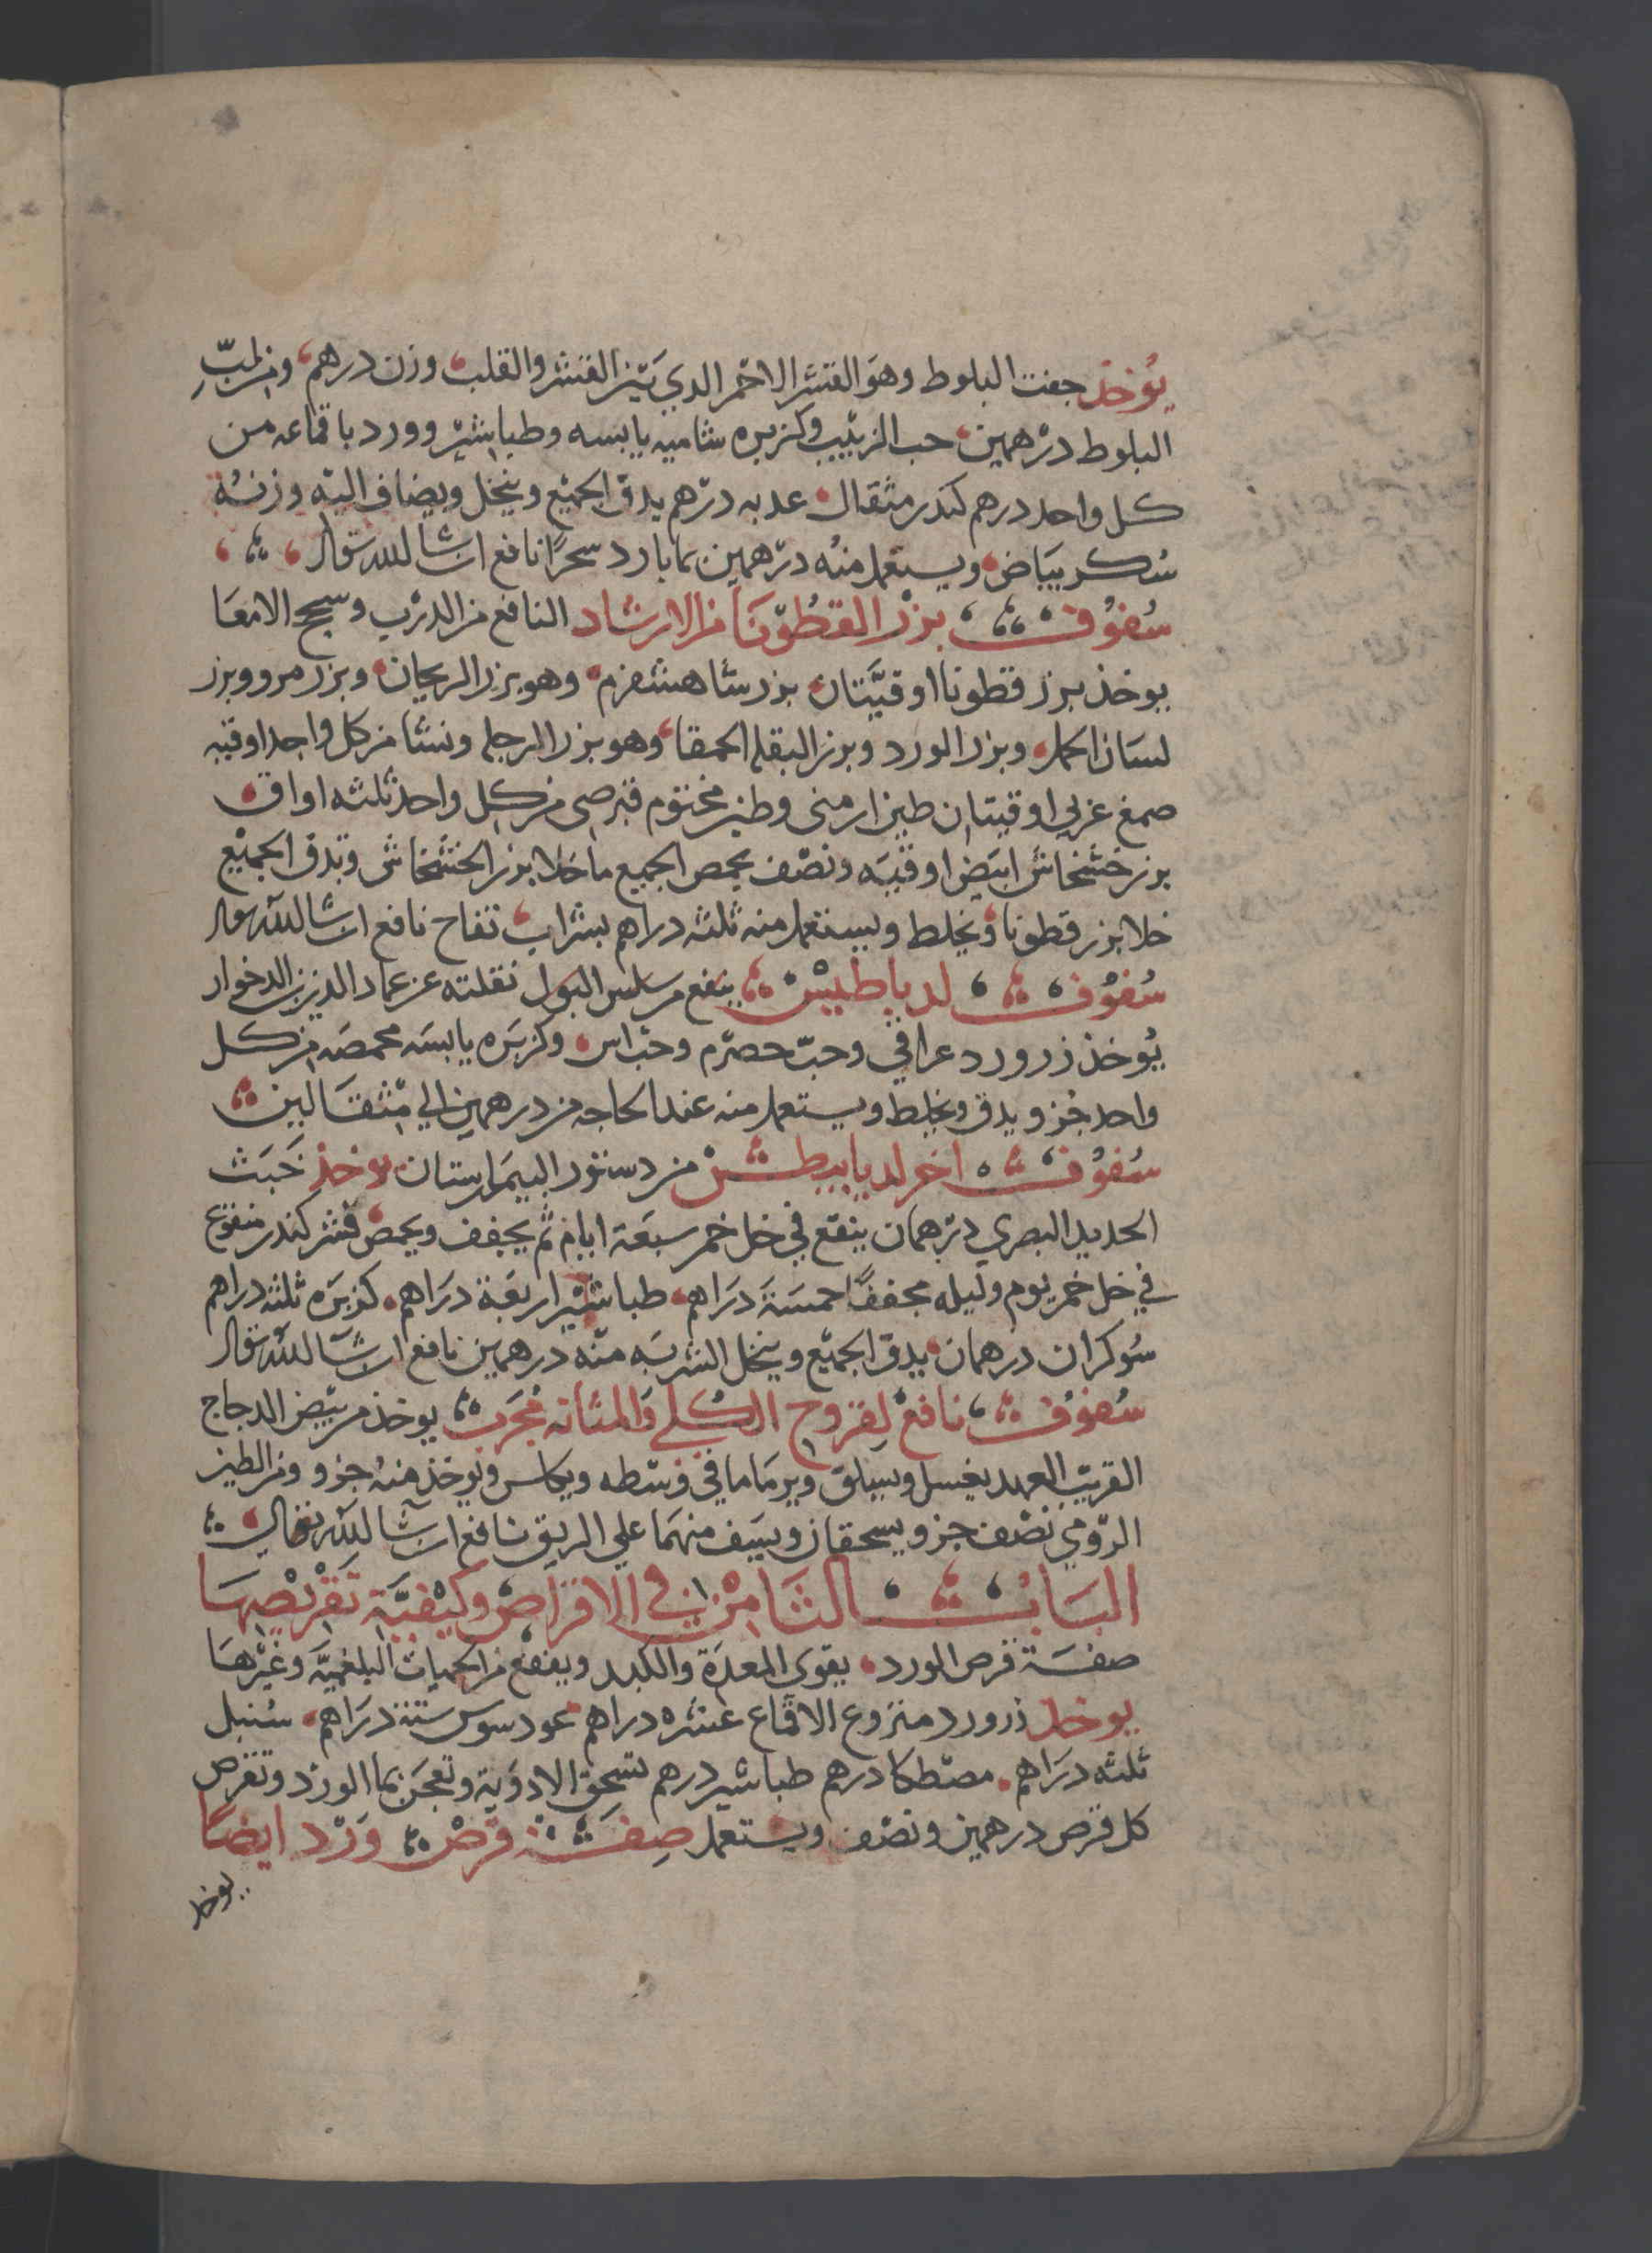 يُوخذ جفت البلوط وهو القشر الاحمر الدي بَيْن القشر والقلب وزن درهم ومن لبّ
البلوط درهمين حب الزبيب وكزبره شاميه يابسه وطباشير وورد باقماعه من
كل واحد درهم كندر مثقال عدبه درهم يدق الجميع وينخل ويضاف اليه وزنه
سُكر بياض ويستعمل منه درهمين بما بارد سحرًا نافع ان شا الله تعالى
سُفوُف بزر القطُوّنَا من الارشاد النافع من الدرب وسحج الامعَا
يوخذ بزر قطونا اوقيَّتان بزر شاهشفرم وهو بزر الريحان وبزر مرو وبزر
لسَان الحمل وبزر الورد وبزر البقله الحمقا وهو بزر الرجله ونشا من كل واحد اوقيه
صمغ عربي اوقيتان طين ارمنى وطين مختوم قبرصى من كل واحد ثلثه اواق
بزر خشخاش ابيَض اوقيَه ونصف يحمص الجميع ما خلا بزر الخشخاش ويدق الجميع
خلا بزر قطونا ويخلط ويستعمل منه ثلثه دراهم بشراب تفاح نافع ان شا الله تعالى
سُفوُف لديابيطيس ينفع من سلس البول نقلته عن عماد الدين بن الدخوار
يُوخذ زرورد عراقي وحبّ حصرم وحب اس وكزبَره يابسَه محمصَه من كل
واحد جُزو يدق ويخلط ويستعمل منه عند الحاجه من درهمين الي مثقالين
سُفوُف اخر لديابيطش من دستور البيمَارستان يوخذ خَبَث
الحديد البصري درهمان ينقع في خل خمر سبعَة ايام ثم يجفف ويحمص قشر كندر منقوع
في خل خمر يوم وليله مجففًا خمسَة دَرَاهم طباشير اربعَة دَرَاهم كزبَره ثلثه دراهم
سُوكران درهمان يدق الجميع وينخل الشربَه منه درهمين نافع ان شا الله تعالى
سُفوُف نافع لِقروح الكُلي وَالمثانه مُجَرب يوخذ من بيض الدجاج
القريب العهد يغسل ويسلق ويرمَا ما في وسَطه ويكلس ويوخذ منه جزو ومن الطين
الرّومي نصف جزو يسحقان ويسَف منهمَا علي الريق نافع ان شا الله تعالى
البَابُ الثَامن في الاقرَاص وكيْفيَّة تقْريْصهَا
صفَة قرص الورد يقوى المعدَة والكبد وينفع من الحميات البلغميَّه وغيْرهَا
يوخذ زرورد منزوع الاقماع عشره دراهم عود سوس ستة دَرَاهم سُنبل
ثلثه دَرَاهم مصْطكا درهم طباشير درهم تسحق الادوَية وتعجَن بما الورد وتقرص
كل قرص درهمين ونصف ويستعمل صِفَة قرْص وَرْد ايضًا
يوخذ